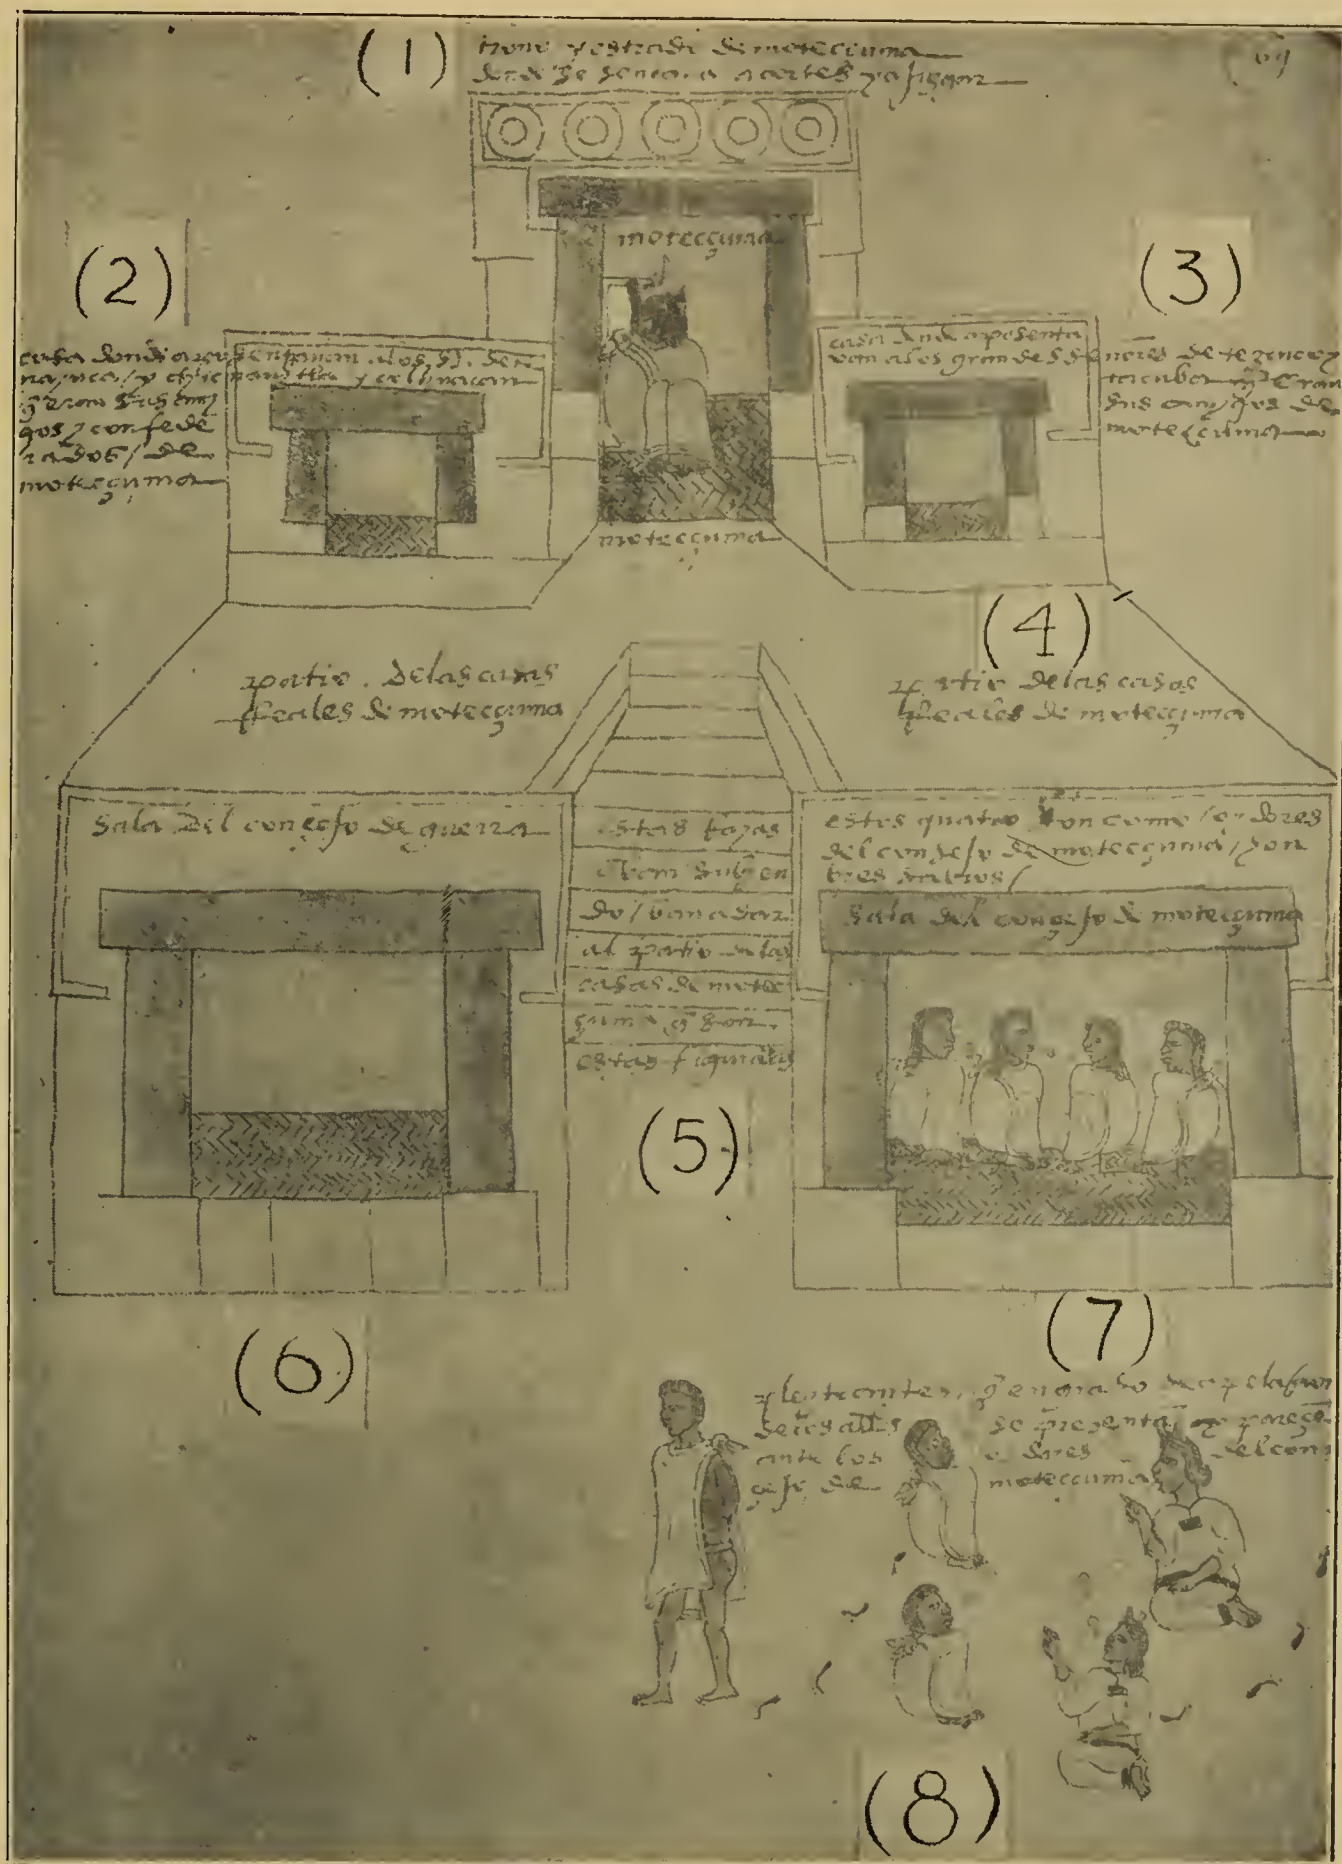 (1)
trono y estrado de motecçuma
donde se sentava a cortes y a juzgar
69
moteccuma
(2)
casa donde aposentavan a los
nayuca / y chicnauhtla / y colhuacan
q̄ eran sus ami
gos y confede
rados / de
motecçuma
(3)
casa donde aposenta
van a los grandes señores de tezcuco y
tacuba q̄ eran
sus amigos de
motecçuma
motecçuma
(4)
patio . de las casas
rreales de motecçuma
patio de las casas
rreales de motecçuma
sala del conçejo de guerra
estas rayas
van suben
do / van a dar
al patio de las
casas de motec
çuma q̄ son
estas figuradas
(5)
estos quatro son como / oydores
del consejo de motecçuma / hon
bres sabios /
sala del conçejo de motecçuma
(6)
(7)
pleyteantes. q̄ en grado de apelaçion
de los alcaldes se presentā y pareçē
ante los oydores del con
çejo de motecçuma
(8)